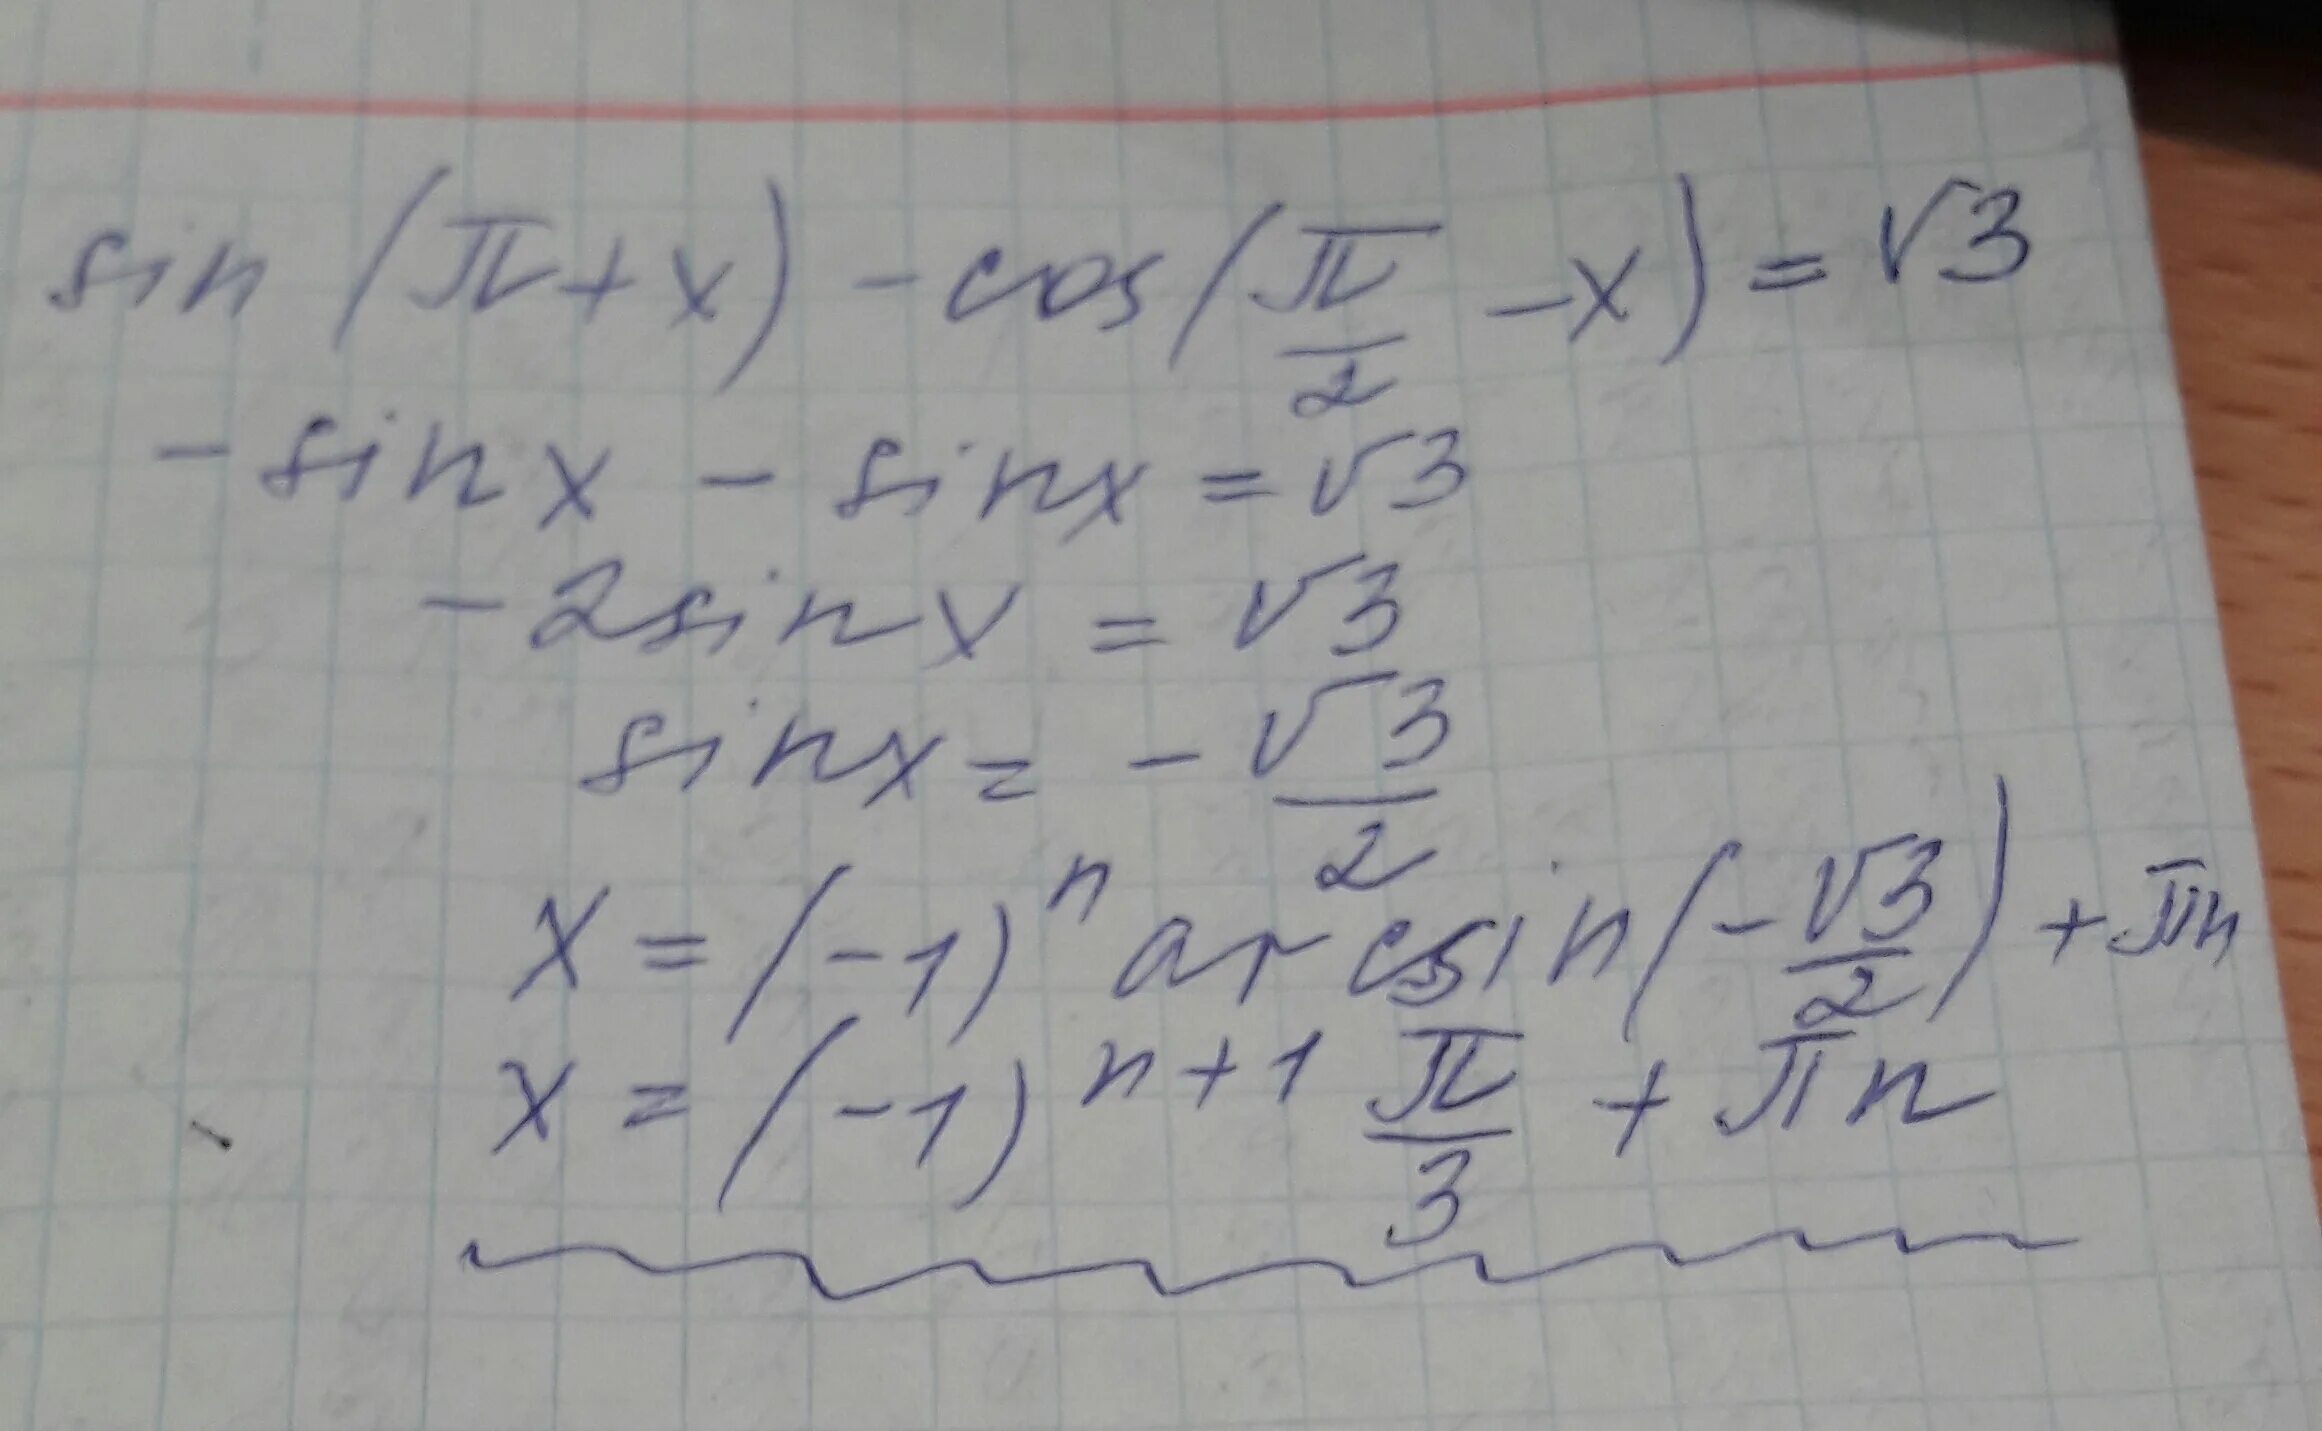 sin(π+x) - cos(π/2 - x) = √3
- sin x - sin x = √3
- 2 sin x = √3
sin x = - √3/2
x = (-1)^n arcsin(-√3/2) + πn
x = (-1)^(n+1) π/3 + πn